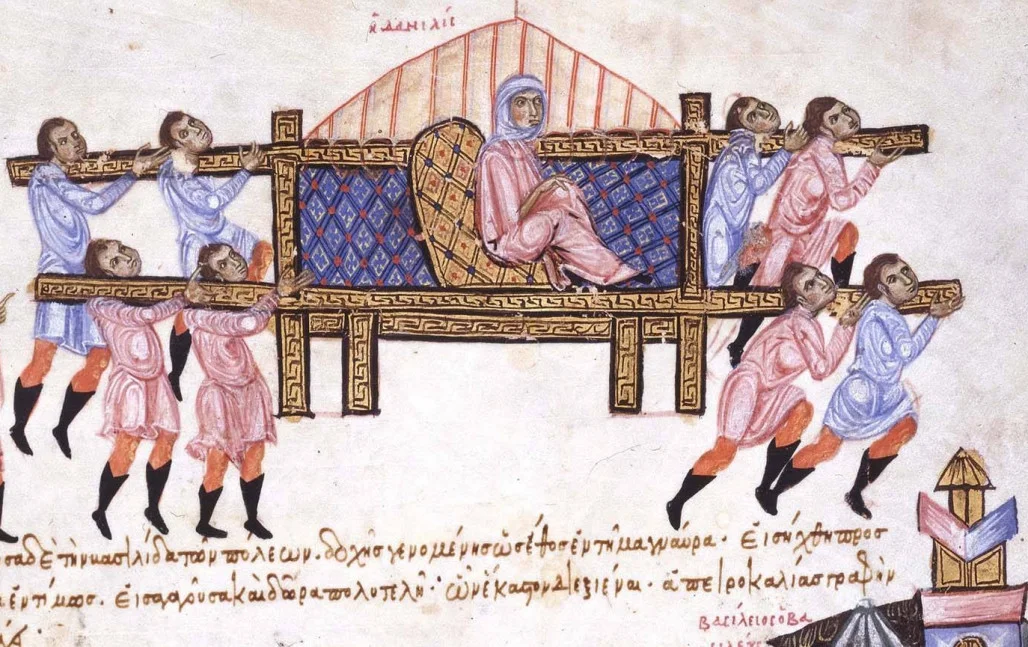 ἡ δανιλίς
σασα δὲ τὴν βασιλίδα τῶν πόλεων. δοχῆς γενομένης ὡς ἔθος ἐν τῇ μαγναύρα. Εἰσήχθη προς
ἐντίμως. Εἰσάγουσα καὶ δῶρα πολυτελῆ· ὧν ἕκαστον διεξιέναι. ἀπειροκαλίας γραφὴν
βασίλειος ὁ βα
σιλεύς